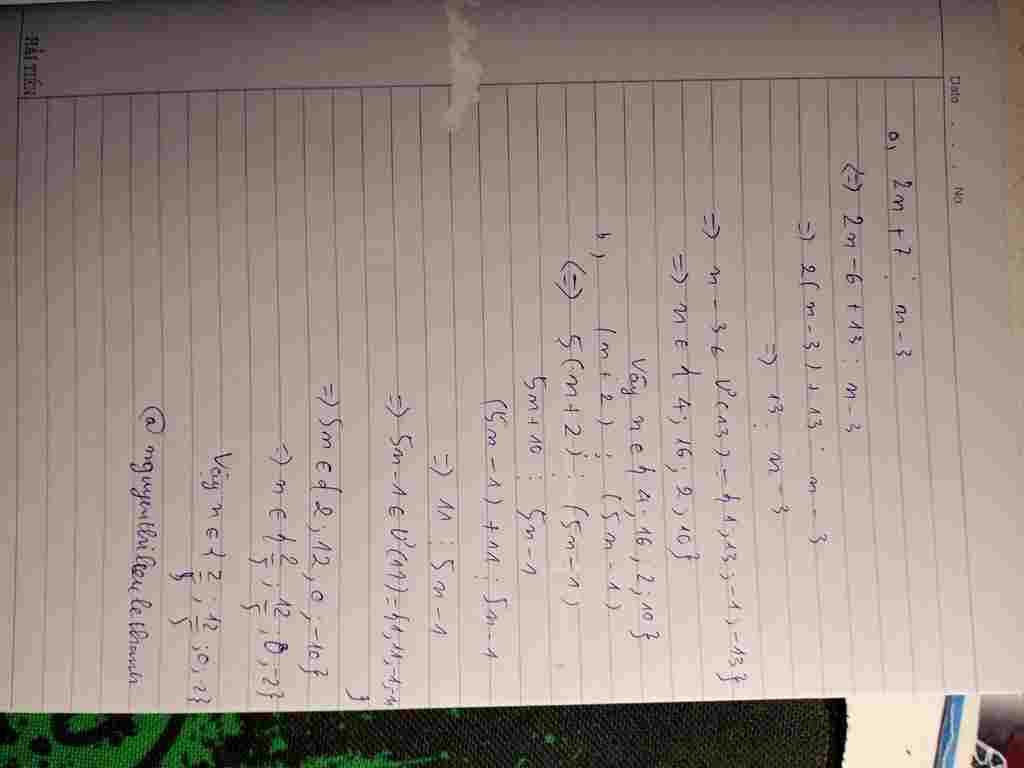 Date . . . . No.
a, 2n+7 ⋮ n-3
(=) 2n-6+13 ⋮ n-3
=) 2(n-3)+13 ⋮ n-3
=) 13 ⋮ n-3
=) n-3 ∈ Ư(13) = {1; 13; -1; -13}
=) n ∈ {4; 16; 2; 10}
Vậy n ∈ {4; 16; 2; 10}
b, (n+2) ⋮ (5n-1)
(=) 5(n+2) ⋮ (5n-1)
5n+10 ⋮ 5n-1
(5n-1)+11 ⋮ 5n-1
=) 11 ⋮ 5n-1
=) 5n-1 ∈ Ư(11) = {1; 11; -1; -11
}
=) 5n ∈ {2; 12; 0; -10}
=) n ∈ {2/5; 12/5; 0; -2}
Vậy n ∈ {2/5; 12/5; 0; -2}
HẢI TIẾN